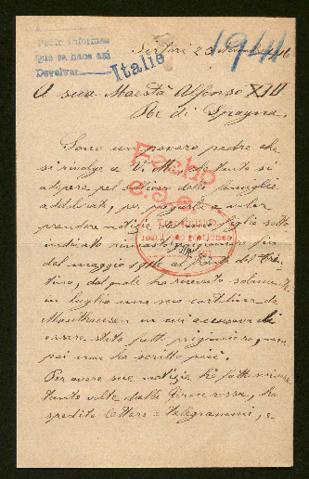 Pedir informes
Que se hace así
Devolver
Italie
1944
A sua Maestà Alfonso XIII
Re di Spagna.
Sono un povero padre che
si rivolge a V. M. che tanto si
adopera pel sollievo delle famiglie
addolorate, per pregarla a voler
prendere notizie del mio figlio sotto
indicato rimasto prigioniero fin
del maggio 1916 al fronte del Tren-
tino, dal quale ho ricevuto solamente
in luglio una sua cartolina da
Mauthausen in cui accusava di
essere stato fatto prigioniero, ma
poi non ha scritto più.
Per avere sue notizie ho fatto scrivere
tante volte dalla Croce rossa, ho
spedito lettere e telegrammi, e
Fecho